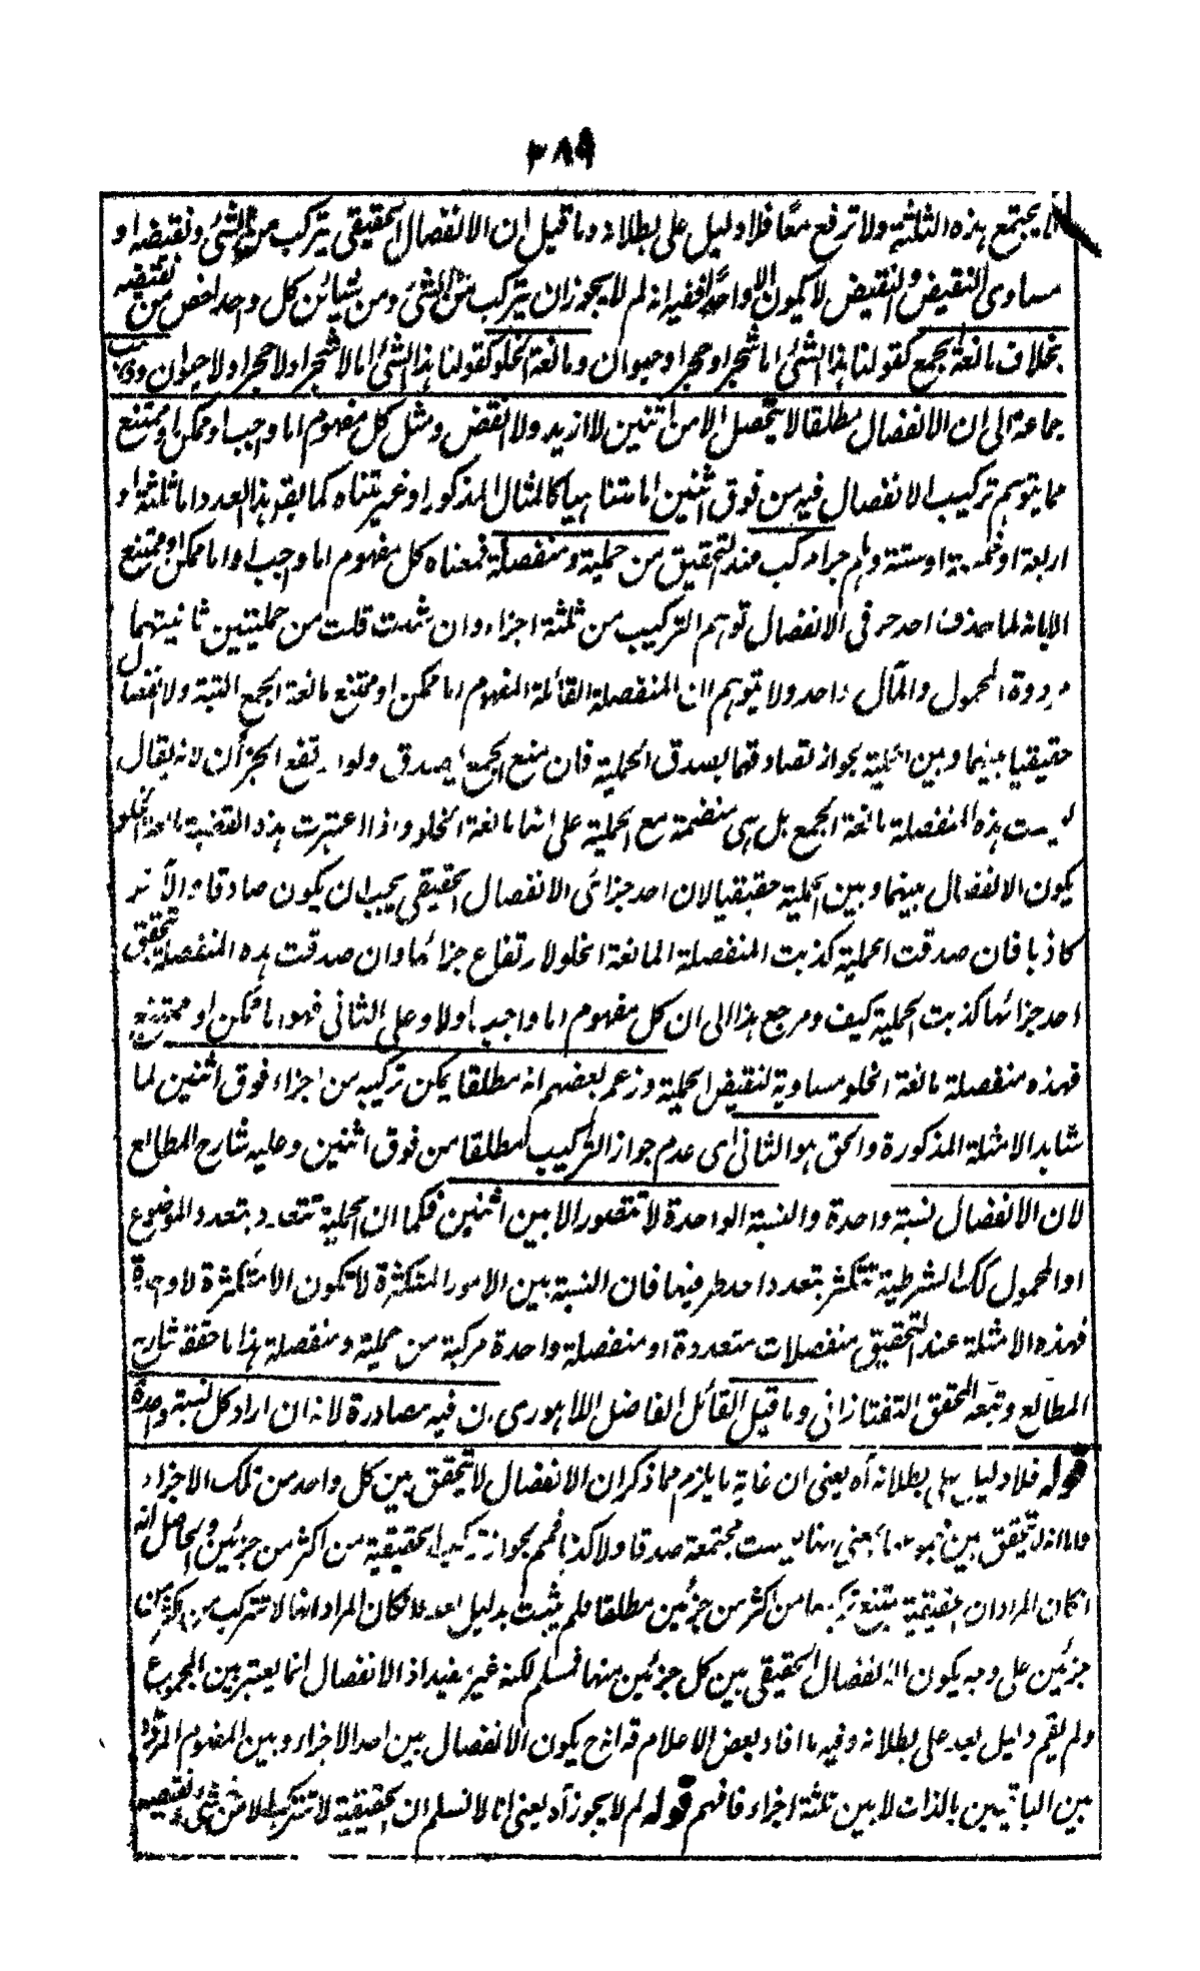 ٣٨٩
يجتمع هذه الثلثة ولا ترفع معًا فلا دليل على بطلانه وما قيل ان الانفصال الحقيقى يتركب من الشئ ونقيضه او
مساوى النقيض والنقيض لا يكون الا واحدًا ففيه انه لم لا يجوز ان يتركب من الشئ ومن شيائن كل واحد اخص من نقيضه
بخلاف مانعة الجمع كقولنا هذا الشئ اما شجر او حجر او حيوان ومانعة الخلو كقولنا هذا الشئ اما لا شجر او لا حجر او لا حيوان وذهب
جماعة الى ان الانفصال مطلقا لا يتحصل الا من اثنين لا ازيد ولا انقص ومثل كل مفهوم اما واجب او ممكن او ممتنع
مما يتوهم تركيب الانفصال فيه من فوق اثنين اما متناهيا كالمثال المذكور او غير متناه كما يقو هذا العدد اما ثلثة او
اربعة او خمسة او ستة وهلم جرا مركب عند التحقيق من حملية ومنفصلة فمعناه كل مفهوم اما واجب او اما ممكن او ممتنع
الا انه لما حذف احد حر فى الانفصال توهم التركيب من ثلثة اجزاء وان شئت قلت من حمليتين ثانيتهما
مرددة المحمول والمآل واحد ولا يتوهم ان المنفصلة القائلة المفهوم اما ممكن او ممتنع مانعة الجمع البتة ولا انفصال
حقيقيا بينها وبين الحملية لجواز تصادقهما بصدق الحملية فان منع الجمع يصدق ولو ارتفع الجزآن لانه يقال
ليست هذه المنفصلة مانعة الجمع بل هى منضمة مع الحملية على انها مانعة الخلو واذا اعتبرت هذه القضية مانعة الخلو
يكون الانفصال بينها وبين الحملية حقيقيا لان احد جزائى الانفصال الحقيقى يجب ان يكون صادقا والآخر
كاذبا فان صدقت الحملية كذبت المنفصلة المانعة الخلو لارتفاع جزائها وان صدقت هذه المنفصلة تحقق
احد جزائها كذبت الحملية كيف ومرجع هذا الى ان كل مفهوم اما واجب او لا وعلى الثانى فهو اما ممكن او ممتنع
فهذه منفصلة مانعة الخلو مساوية لنقيض الحملية وزعم بعضهم انه مطلقا يمكن تركيبه من اجزاء فوق اثنين لما
شاهد الامثلة المذكورة والحق هو الثانى اى عدم جواز التركيب مطلقا من فوق اثنين وعليه شارح المطالع
لان الانفصال نسبة واحدة والنسبة الواحدة لا تتصور الا بين اثنين فكما ان الحملية تتعدد بتعدد الموضوع
او المحمول كك الشرطية تتكثر بتعدد احد طرفيها فان النسبة بين الامور المتكثرة لا تكون الا متكثرة لا وحدة
فهذه الامثلة عند التحقيق منفصلات متعددة او منفصلة واحدة مركبة من حملية ومنفصلة هذا ما حققه شارح
المطالع وتبعه المحقق التفتازانى وما قيل القائل الفاضل اللاهورى ان فيه مصادرة لانه ان اراد كل نسبة واحدة
قوله فلا دليل على بطلانه آه يعنى ان غاية ما يلزم مما ذكر ان الانفصال لا يتحقق بين كل واحد من تلك الاجزاء
واما انه لا يتحقق بين مجموعها بمعنى انها ليست مجتمعة صدقا ولا كذبا فمم لجواز تركيب الحقيقية من اكثر من جزئين والحاصل انه
ان كان المراد ان الحقيقية يمتنع تركيبها من اكثر من جزئين مطلقا فلم يثبت بدليل بعد وان كان المراد انها لا تتركب من اكثر من
جزئين على وجه يكون الانفصال الحقيقى بين كل جزئين منها فمسلم لكنه غير مفيد اذ الانفصال انما يعتبر بين المجموع
ولم يقم دليل بعد على بطلانه وفيه ما افاد بعض الاعلام قد انح يكون الانفصال بين احد الاجزاء وبين المفهوم المردد
بين الباقيين بالذات لا بين ثلثة اجزاء فافهم قوله لم لا يجوز آه يعنى انا لا نسلم ان الحقيقية لا تتركب الا من شئ ونقيضه